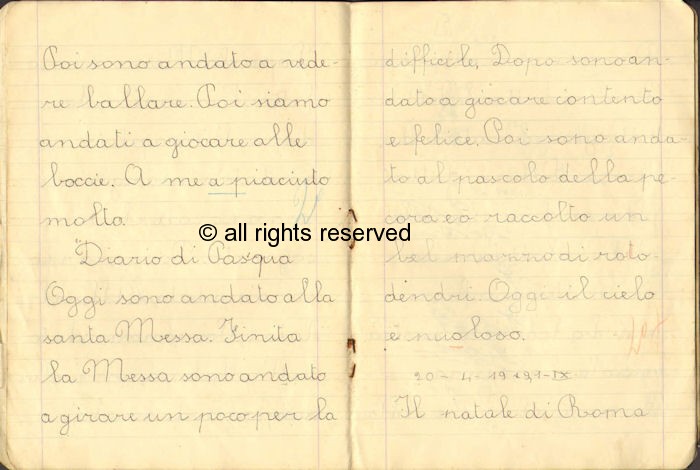 Poi sono andato a vede-
re ballare. Poi siamo
andati a giocare alle
boccie. A me a piaciuto
molto.
"Diario di Pasqua
Oggi sono andato alla
santa Messa. Finita
la Messa sono andato
a girare un poco per la
© all rights reserved
difficile. Dopo sono an-
dato a giocare contento
e felice. Poi sono anda-
to al pascolo della pe-
cora e ò raccolto un
bel mazzo di roto-
dendri. Oggi il cielo
è nuoloso.
20-4-1931-IX
Il natale di Roma